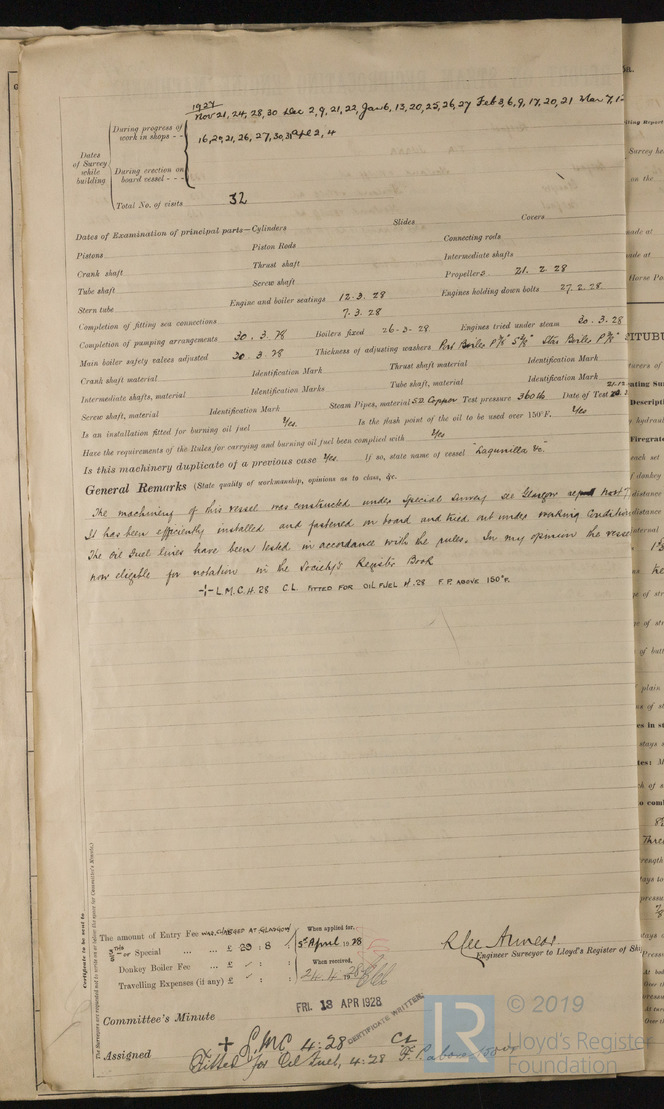 1927
Nov 21, 24, 28, 30 Dec 2, 9, 21, 22, Jan 6, 13, 20, 25, 26, 27 Feb 3, 6, 9, 17, 20, 21 Mar 7, 12
During progress of work in shops - -
16, 20, 21, 26, 27, 30, 31 Apl 2, 4
Dates of Survey while building
During erection on board vessel - - -
Total No. of visits 32
Dates of Examination of principal parts—Cylinders Slides Covers
Pistons Piston Rods Connecting rods
Crank shaft Thrust shaft Intermediate shafts
Tube shaft Screw shaft Propellers 21. 2. 28
Stern tube Engine and boiler seatings 12. 3. 28 Engines holding down bolts 27. 2. 28
Completion of fitting sea connections 7. 3. 28
Completion of pumping arrangements 30. 3. 28 Boilers fixed 26. 3. 28 Engines tried under steam 30. 3. 28
Main boiler safety valves adjusted 30. 3. 28 Thickness of adjusting washers Port Boiler Star Boiler
Crank shaft material Identification Mark Thrust shaft material Identification Mark
Intermediate shafts, material Identification Marks Tube shaft, material Identification Mark
Screw shaft, material Identification Mark Steam Pipes, material S.D. Copper Test pressure 360 lb Date of Test
Is an installation fitted for burning oil fuel Yes. Is the flash point of the oil to be used over 150°F. Yes
Have the requirements of the Rules for carrying and burning oil fuel been complied with Yes
Is this machinery duplicate of a previous case Yes. If so, state name of vessel "Lagunilla &c."
General Remarks (State quality of workmanship, opinions as to class, &c.
The machinery of this vessel was constructed under Special Survey see Glasgow report No
It has been efficiently installed and fastened on board and tried out under working Condition
The oil fuel lines have been tested in accordance with the rules. In my opinion the vessel
now eligible for notation in the Society's Register Book
+ L.M.C. 4.28 C.L. FITTED FOR OIL FUEL 4.28 F.P. ABOVE 150°F.
Certificate to be sent to
The Surveyors are requested not to write on or below the space for Committee's Minute.
The amount of Entry Fee WAS CHARGED AT GLASGOW When applied for,
or Special ... ... £ 29 : 8 5th April 1928
Donkey Boiler Fee ... £ : : When received,
Travelling Expenses (if any) £ : : 24. 4. 1928
Engineer Surveyor to Lloyd's Register of Ship
FRI. 13 APR 1928
CERTIFICATE WRITTEN
Committee's Minute
Assigned + LMC 4.28 CL
Fitted for Oil Fuel, 4.28 F.P. above 150°F
© 2019
LR Lloyd's Register
Foundation